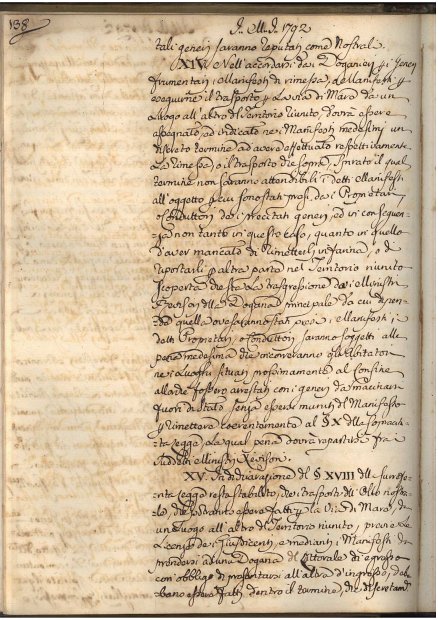 138
J. M. J. 1792
tali generi saranno reputati come Nostrali.
XIV. Nell'accordarsi dei Doganieri p i generi
frumentari, i Manifesti di rimessa, o Manifesti p
eseguirne il trasporto p la via di Mare da un
Luogo all'altro del Territorio riunito, dovrà essere
assegnato, ed indicato nei Manifesti medesimi un
discreto termine ad avere effettuato respettivamente
la rimessa, o il trasporto di essi, spirato il qual
termine non saranno attendibili i detti Manifesti
all'oggetto p cui sono stati presi dai Proprietari,
o Conduttori dei precitati generi, ed in conseguen-
za non tanto in questo caso, quanto in quello
d'aver mancato di rimetterli in farina, o di
riportarli p altra parte nel Territorio riunito
scoperta che sia la trasgressione dai Ministri
Revisori della Dogana principale da cui dipen-
da quella ove saranno stati presi i Manifesti, i
detti Proprietari, o Conduttori saranno soggetti alla
pena medesima che incorreranno gli Abitatori
nei Luoghi situati prossimamente al confine
allorchè fossero arrestati con i generi da macinare
fuori di Stato senza essere muniti del Manifesto
di Rimettere coerentemente al § X della sopracita-
ta Legge, la qual pena dovrà repartirsi fra
suddetti Ministri Revisori.
XV. In dichiarazione del § XVIII della surrife-
rita Legge resta stabilito, che i trasporti dell'Olio nostra-
le, che potranno essere fatti p la via di Mare, da
un Luogo all'altro del Territorio riunito, previe le
Licenze dei Giusdicenti, e mediante i Manifesti da
prendersi ad una Dogana del Littorale di egresso
con obbligo di presentarsi all'altra d'ingresso, deb-
bano essere fatti dentro il termine, che discretam.